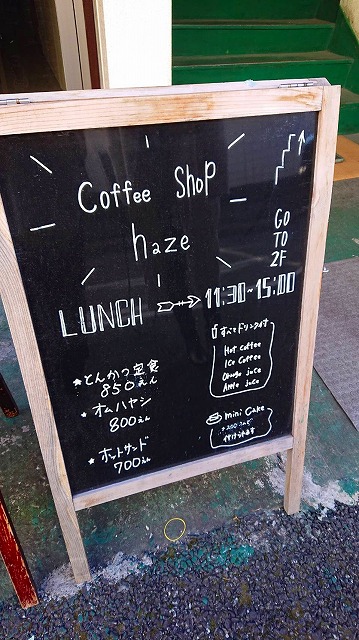 Coffee Shop
haze
GO
TO
2F
LUNCH 11:30~15:00
★とんかつ定食
850えん
★オムハヤシ
800えん
★ホットサンド
700えん
すべてドリンク付す
Hot coffee
Ice coffee
Orange juce
Apple juce
mini cake
付けられます